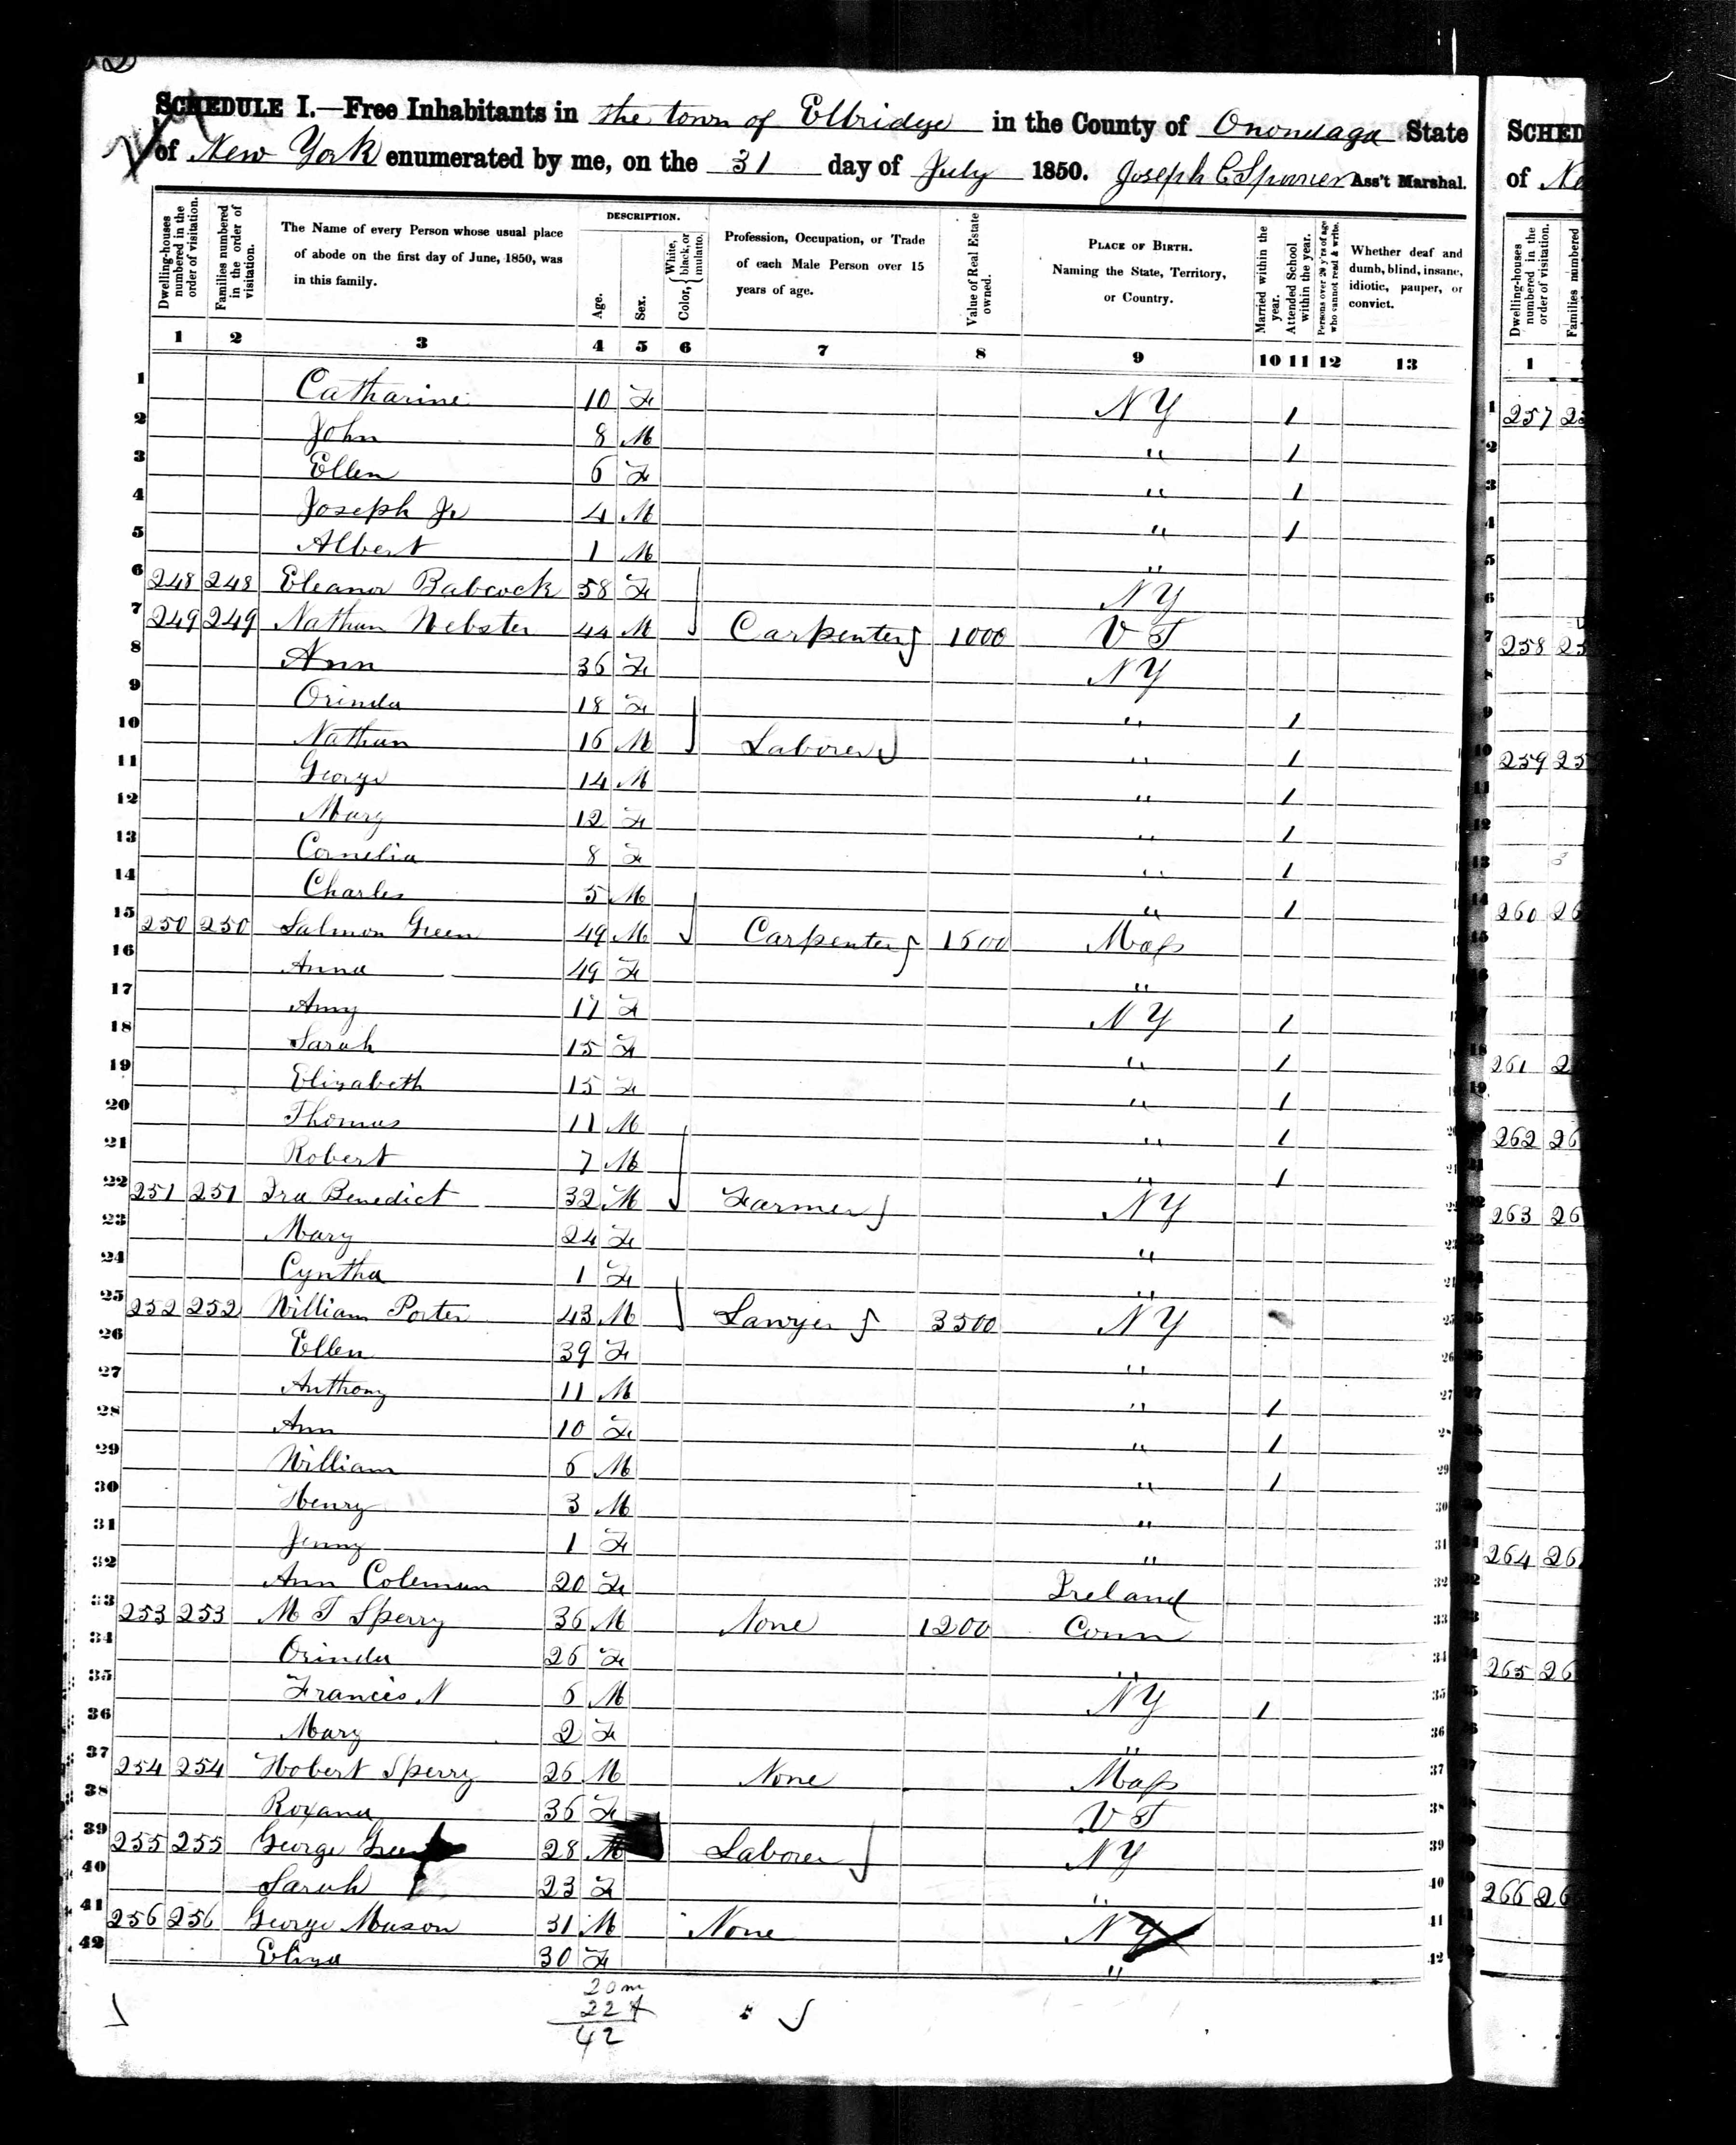 SCHEDULE I.—Free Inhabitants in the town of Elbridge in the County of Onondaga State
of New York enumerated by me, on the 31 day of July 1850. Joseph C Spencer Ass't Marshal.
Dwelling-houses numbered in the order of visitation.
Families numbered in the order of visitation.
The Name of every Person whose usual place of abode on the first day of June, 1850, was in this family.
DESCRIPTION.
Age.
Sex.
Color, { White, black, or mulatto.
Profession, Occupation, or Trade of each Male Person over 15 years of age.
Value of Real Estate owned.
PLACE OF BIRTH.
Naming the State, Territory, or Country.
Married within the year.
Attended School within the year.
Persons over 20 y'rs of age who cannot read & write.
Whether deaf and dumb, blind, insane, idiotic, pauper, or convict.
1 2 3 4 5 6 7 8 9 10 11 12 13
1 Catharine 10 F NY 1
2 John 8 M " 1
3 Ellen 6 F " 1
4 Joseph Jr 4 M " 1
5 Albert 1 M "
6 248 248 Eleanor Babcock 58 F NY
7 249 249 Nathan Webster 44 M Carpenter 1000 VT
8 Ann 36 F NY
9 Orinda 18 F " 1
10 Nathan 16 M Laborer " 1
11 George 14 M " 1
12 Mary 12 F " 1
13 Cornelia 8 F " 1
14 Charles 5 M " 1
15 250 250 Salmon Green 49 M Carpenter 1500 Mass
16 Anna 49 F "
17 Amy 17 F NY 1
18 Sarah 15 F " 1
19 Elizabeth 15 F " 1
20 Thomas 11 M " 1
21 Robert 7 M " 1
22 251 251 Ira Benedict 32 M Farmer NY
23 Mary 24 F "
24 Cyntha 1 F "
25 252 252 William Porter 43 M Lawyer 3500 NY
26 Ellen 39 F "
27 Anthony 11 M " 1
28 Ann 10 F " 1
29 William 6 M " 1
30 Henry 3 M "
31 Jenny 1 F "
32 Ann Coleman 20 F Ireland
33 253 253 M T Sperry 36 M None 1200 Conn
34 Orinda 26 F "
35 Francis N 6 M NY 1
36 Mary 2 F "
37 254 254 Hobert Sperry 26 M None Mass
38 Roxana 36 F VT
39 255 255 George Green 28 M Laborer NY
40 Sarah 23 F "
41 256 256 George Mason 31 M None NY
42 Eliza 30 F "
20 m
22 f
42
SCHED
of Ne
Dwelling-houses numbered in the order of visitation.
Families numbered
1
257
258
259
260
261
262
263
264
265
266